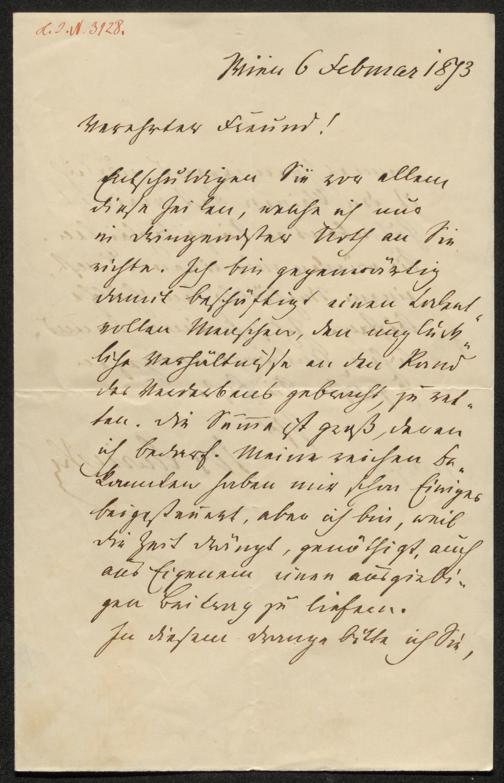 L. I. N. 3128.
Wien 6 Februar 1873
Verehrter Freund!
Entschuldigen Sie vor allem
diese Zeilen, welche ich nur
in dringendster Noth an Sie
richte. Ich bin gegenwärtig
damit beschäftigt einen talent-
vollen Menschen, den unglück-
liche Verhältnisse an den Rand
des Verderbens gebracht zu ret-
ten. Die Summe ist groß, deren
ich bedarf. Meine reichen Be-
kannten haben mir schon Einiges
beigesteuert, aber ich bin, weil
die Zeit drängt, genöthigt, auch
aus Eigenem einen ausgiebi-
gen Beitrag zu liefern.
In diesem Drange bitte ich Sie,